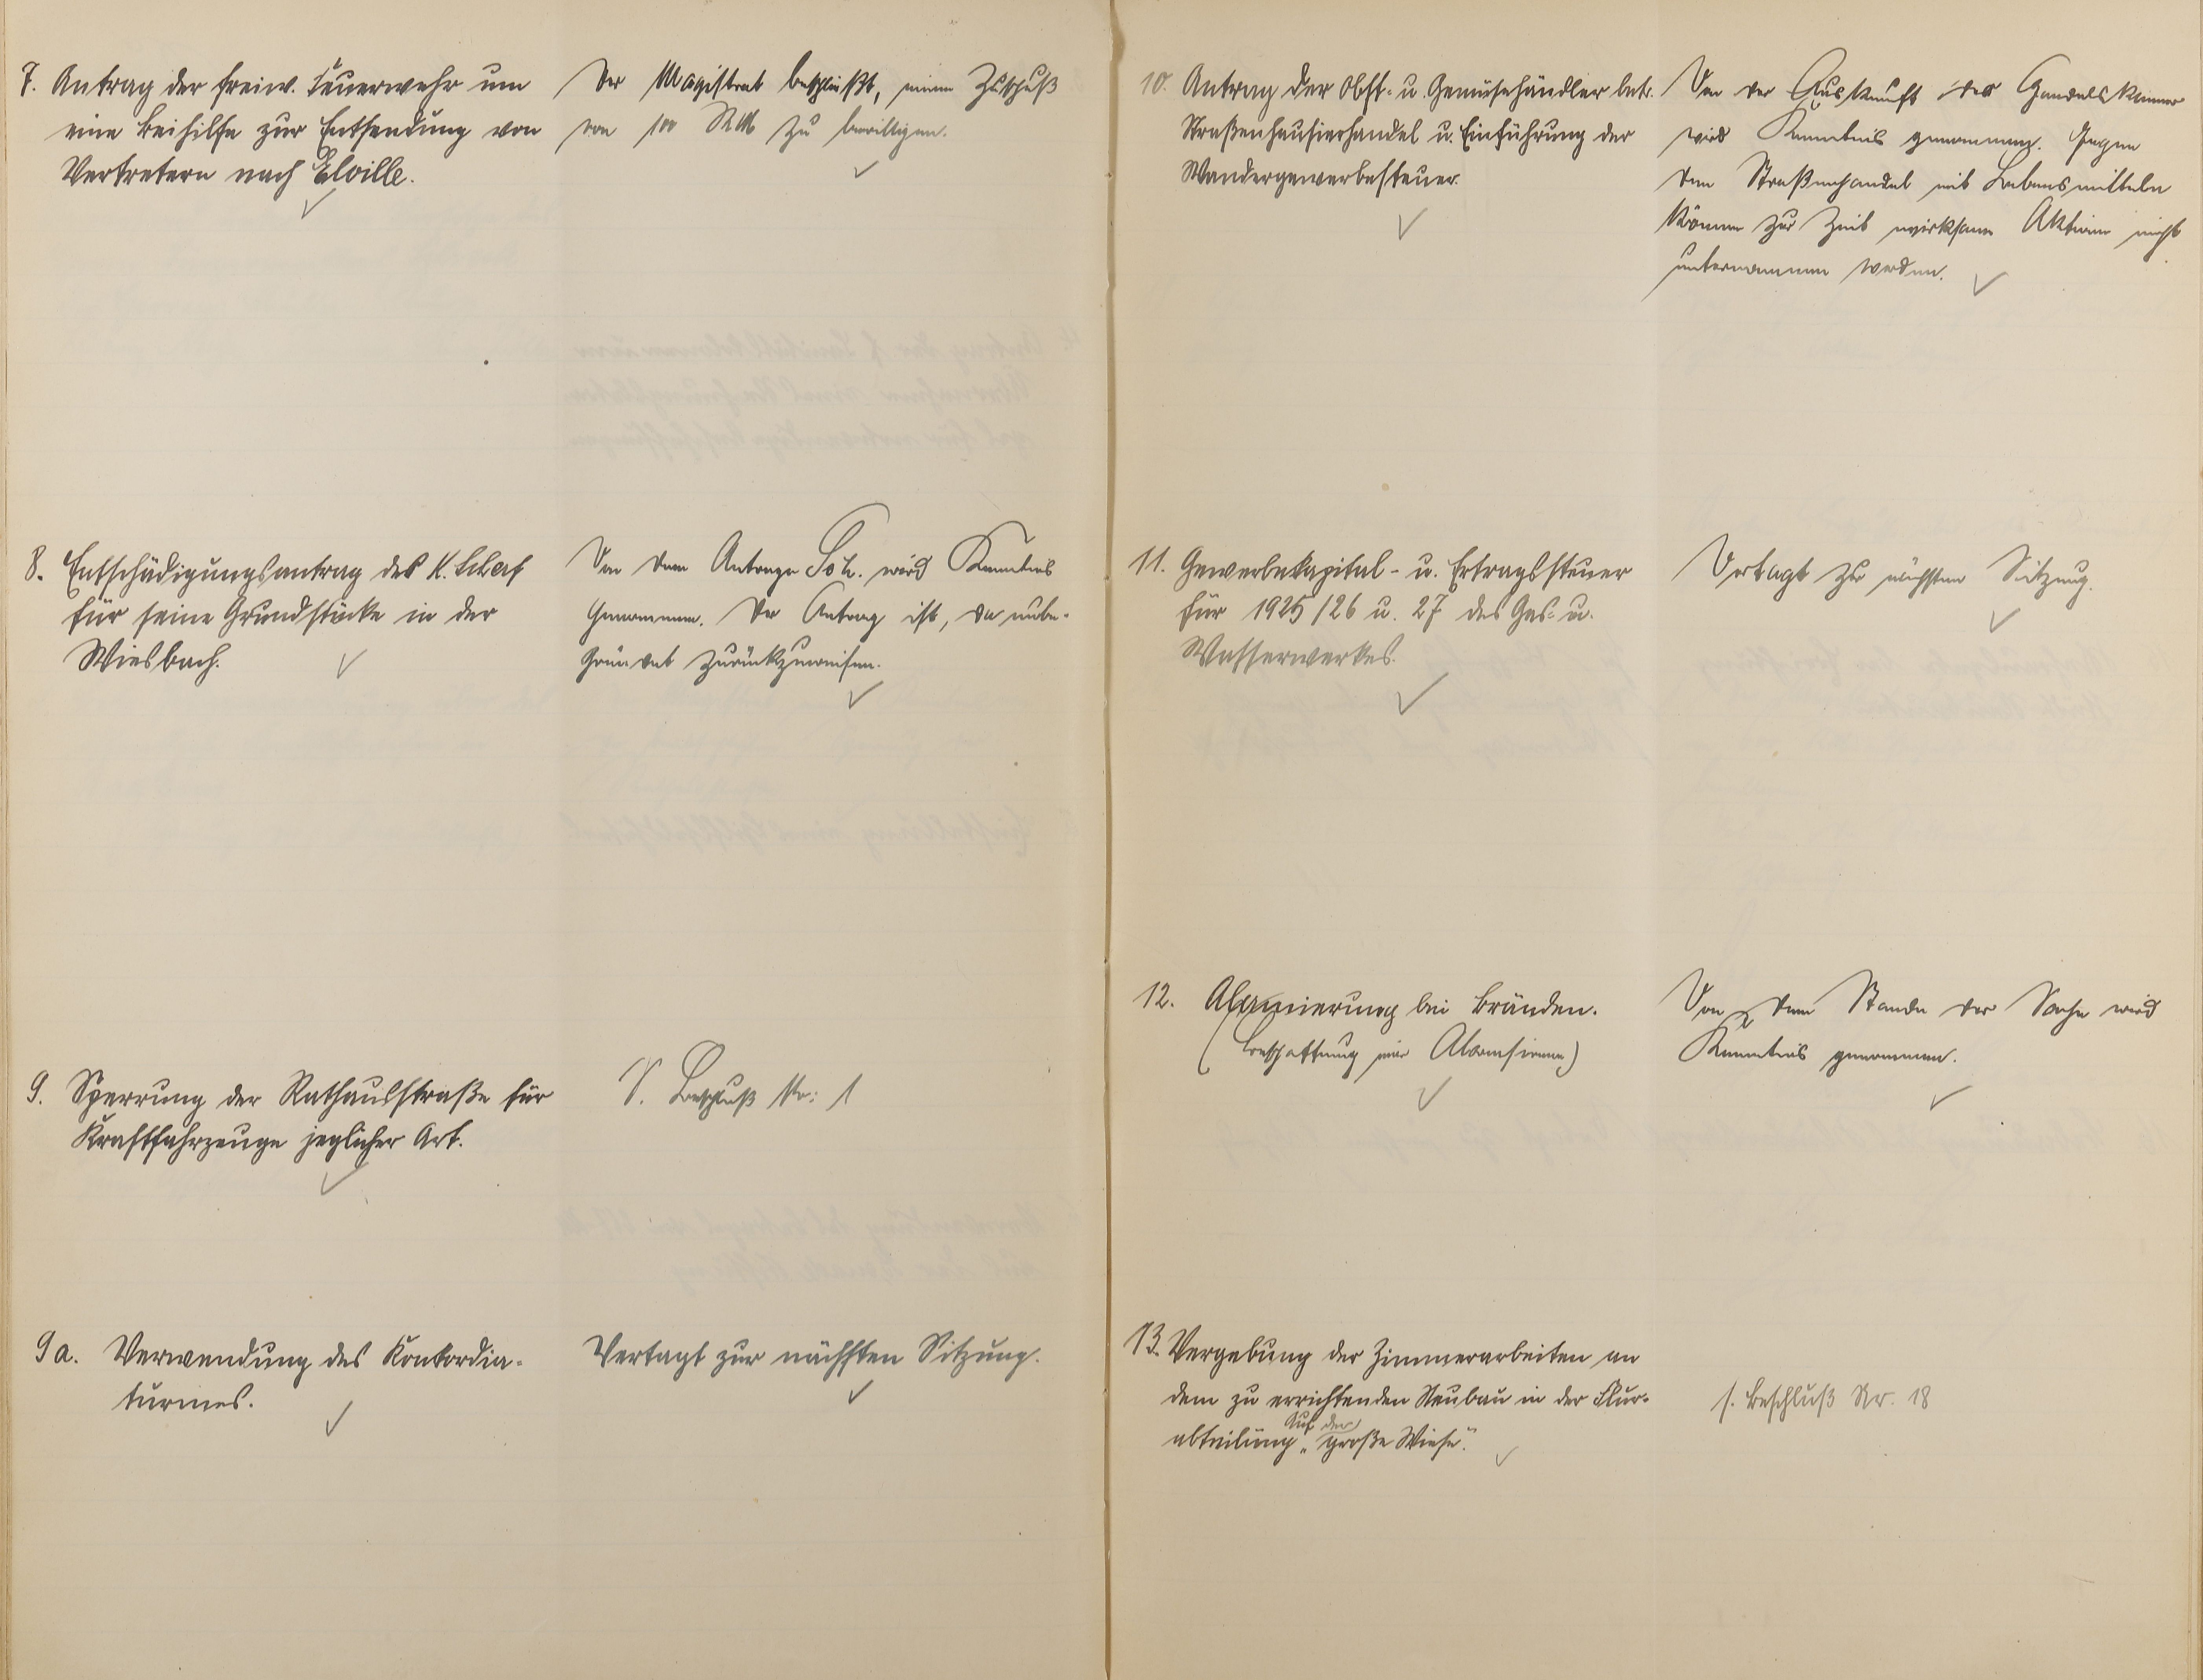 7. Antrag der freiw. Feuerwehr um
eine Beihilfe zur Entsendung von
Vertretern nach Eltville.
Der Magistrat beschließt, einen Zuschuß
von 100 RM zu bewilligen.
8. Entschädigungsantrag des K. Scherf
für seine Grundstücke in der
Wiesbach.
Von dem Antrage Sch. wird Kenntnis
genommen. Der Antrag ist, da unbe-
gründet zurückzuweisen.
9. Sperrung der Rathausstraße für
Kraftfahrzeuge jeglicher Art.
S. Beschluß Nr: 1
9a. Verwendung des Konkordia-
turmes.
Vertagt zur nächsten Sitzung.
10. Antrag der Obst- u. Gemüsehändler betr.
Straßenhausierhandel u. Einführung der
Wandergewerbesteuer.
Von der Auskunft der Handelskammer
wird Kenntnis genommen. Gegen
den Straßenhandel mit Lebensmitteln
können zur Zeit wirksame Aktionen nicht
unternommen werden.
11. Gewerbekapital- u. Ertragssteuer
für 1925/26 u. 27 des Gas- u.
Wasserwerkes.
Vertagt zur nächsten Sitzung.
12. Alarmierung bei Bränden.
(Beschaffung einer Alarmsirene)
Von dem Stande der Sache wird
Kenntnis genommen.
13. Vergebung der Zimmerarbeiten an
dem zu errichtenden Neubau in der Flur-
abteilung „Auf der große Wiese".
s. Beschluß Nr. 18